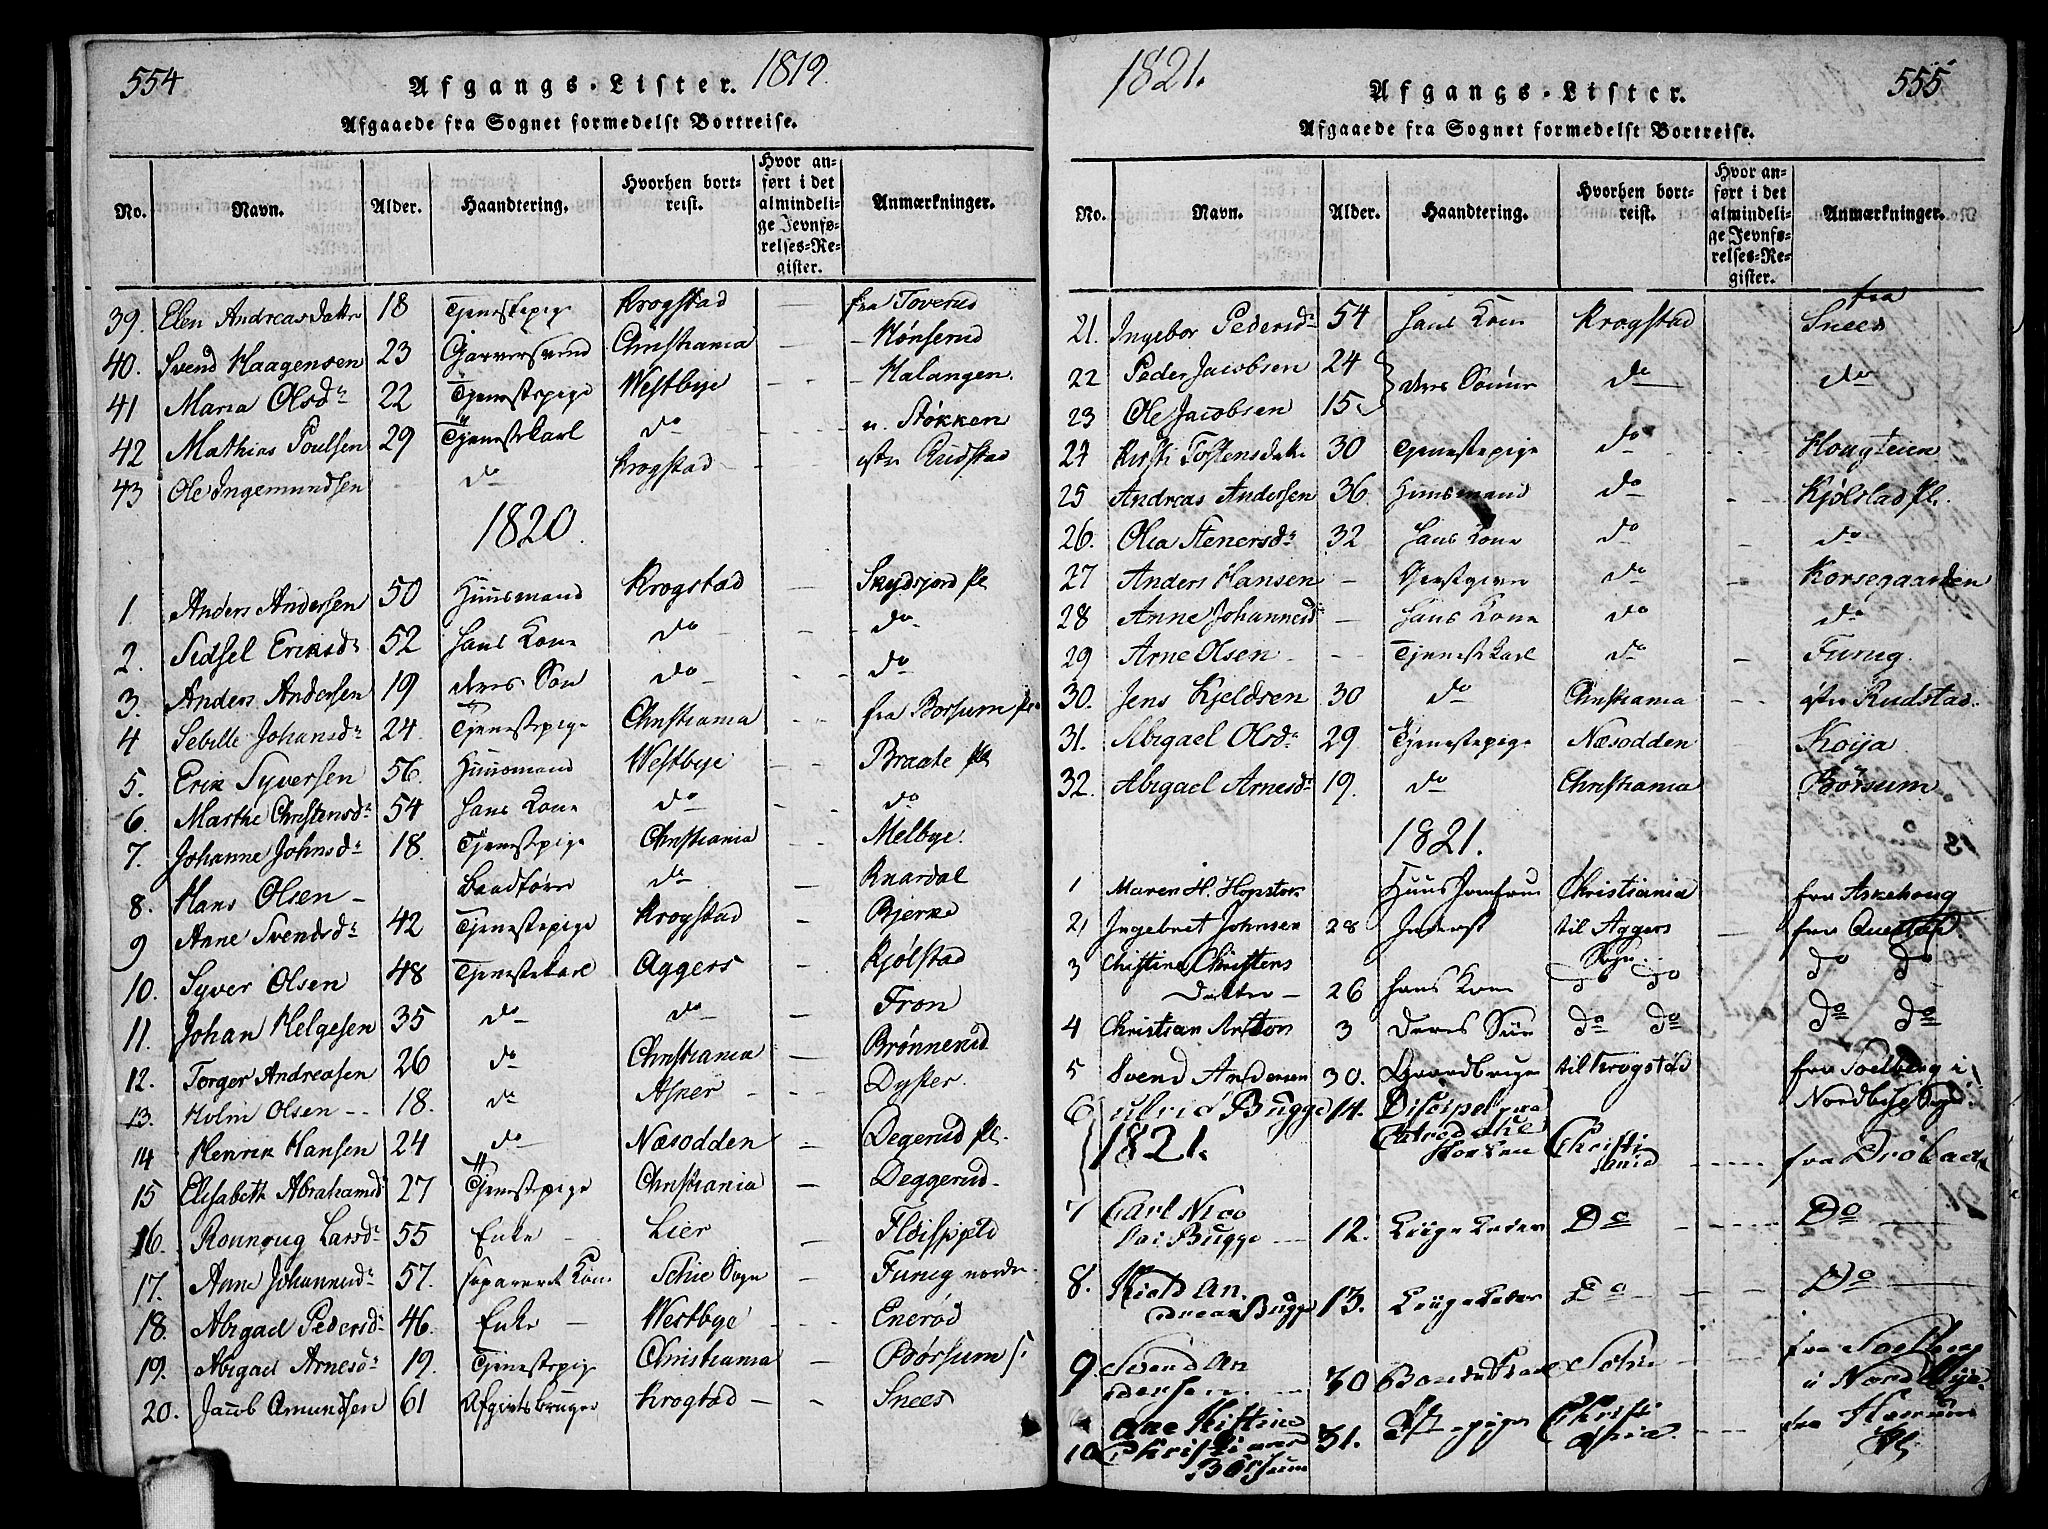 554
Afgangs-Lister. 1819.
Afgaaede fra Sognet formedelst Bortreise.
No. Navn. Alder. Haandtering. Hvorhen bortreist. Hvor anført i det almindelige Jevnførelses-Register. Anmærkninger.
39. Elen Andreasdatter 18 Tjenestepige Krogstad — fra Toverud
40. Svend Haagensen 23 Garversvend Christiania - - - Hønserud
41 Maria Olsdr 22 Tjenestepige Westbye - - - Halangen.
42 Mathias Poulsen 29 Tjenestekarl do - - - n. Støkken
43 Ole Ingemundsen - do Krogstad - - østr Rudstad
1820.
1. Anders Andersen 50 Huusmand Krogstad — Skydsjord Pl
2. Sidsel Eriksdr 52 hans Kone do - - do
3. Anders Andersen 19 deres Søn do - - do
4 Sebille Johansdr 24. Tjenestepige Christiania - - fra Borsum Pl.
5. Erik Syversen 56. Huusmand Westbye - - Braate Pl
6. Marthe Christensdr 54 hans Kone do - - do
7. Johanne Johnsdr 18. Tjenestepige Christiania - - Melbye.
8. Hans Olsen - do - Knardal
9 Anne Svendsdr 42 Tjenestepige Krogstad - Bjerke
10. Syver Olsen 48 Tjenestekarl Aggers - Kjølstad
11. Johan Helgesen 35 do do - Fron
12. Torger Andreasen 26 do Christiania — Brønnerud
13. Holm Olsen -- 18. do Asker — Dyster.
14 Henrik Hansen 24 do Næsodden - Degerud Pl.
15 Elisabeth Abrahamsd 27 Tjenestepige Christiania - Deggerud
16. Ronnoug Larsdr 55 Enke - Lier — Fløisjeld
17. Anne Johannesdr 57. separeret Kone Schie Sogn - Furug nordr
18. Abigael Pedersdr 46. Enke - Westbye - - Enerød
19. Abigael Arnesdr 19. Tjenestepige Christiania - Børsum
20. Jacob Amundsen 61 Afgivtsbruger Krogstad - - - Snees
1821. Afgangs-Lister. 555
Afgaaede fra Sognet formedelst Bortreise.
No. Navn. Alder. Haandtering. Hvorhen bortreist. Hvor anført i det almindelige Jevnførelses-Register. Anmærkninger.
21. Ingebor Pedersdr 54 hans Kone Krogstad fra Snees
22 Peder Jacobsen 24 } deres Sønner do do
23 Ole Jacobsen 15
24 Kirsti Tostensdatter 30 Tjenestepige do Hougteien
25 Andreas Andersen 36 Huusmand do - - Kjølstad Pl.
26. Olia Stenersdr 32 hans Kone do - do
27 Anders Hansen - do - Korsegaarden
28 Anne Johannesd - hans Kone do do
29 Arne Olsen - - Tjenestekarl do - Furug.
30. Jens Kjeldsen 30 do Christiania - østr Rudstad.
31. Abigael Olsdr 29 Tjenestepige Næsodden Koija
32. Abigael Arnesdr 19. do Christiania Børsum
1821.
1 Maren H. Hopstok Huus Jomfrue Christiania fra Askehoug
2, Ingebret Johnsen 28 Inderst til Aggers — fra
3 Christine Christens Sogn.
Datter - 26 hans Kone do do do do
4 Christian Anton 3 deres Søn do do do do
5 Svend Andersen 30. Gaardbruger til Krogstad fra Soelberg i
6 Ulrich Bugge 14. Discipel fra Nordbye Sogn
1821. Christi
ania - - - - fra Drøbak
7 Carl Nico
lai Bugge 12. Ligeledes Do - - - - Do
8. Kield An.
dreas Bugge 13. Ligeledes Do - - - Do
9. Svend An fra Soelberg
dersen 30 Bondekarl Schie - - i Nordbye.
10. Ane Kistine
Christians 31. pige Christi
ania. - - fra
Børsum Pl.